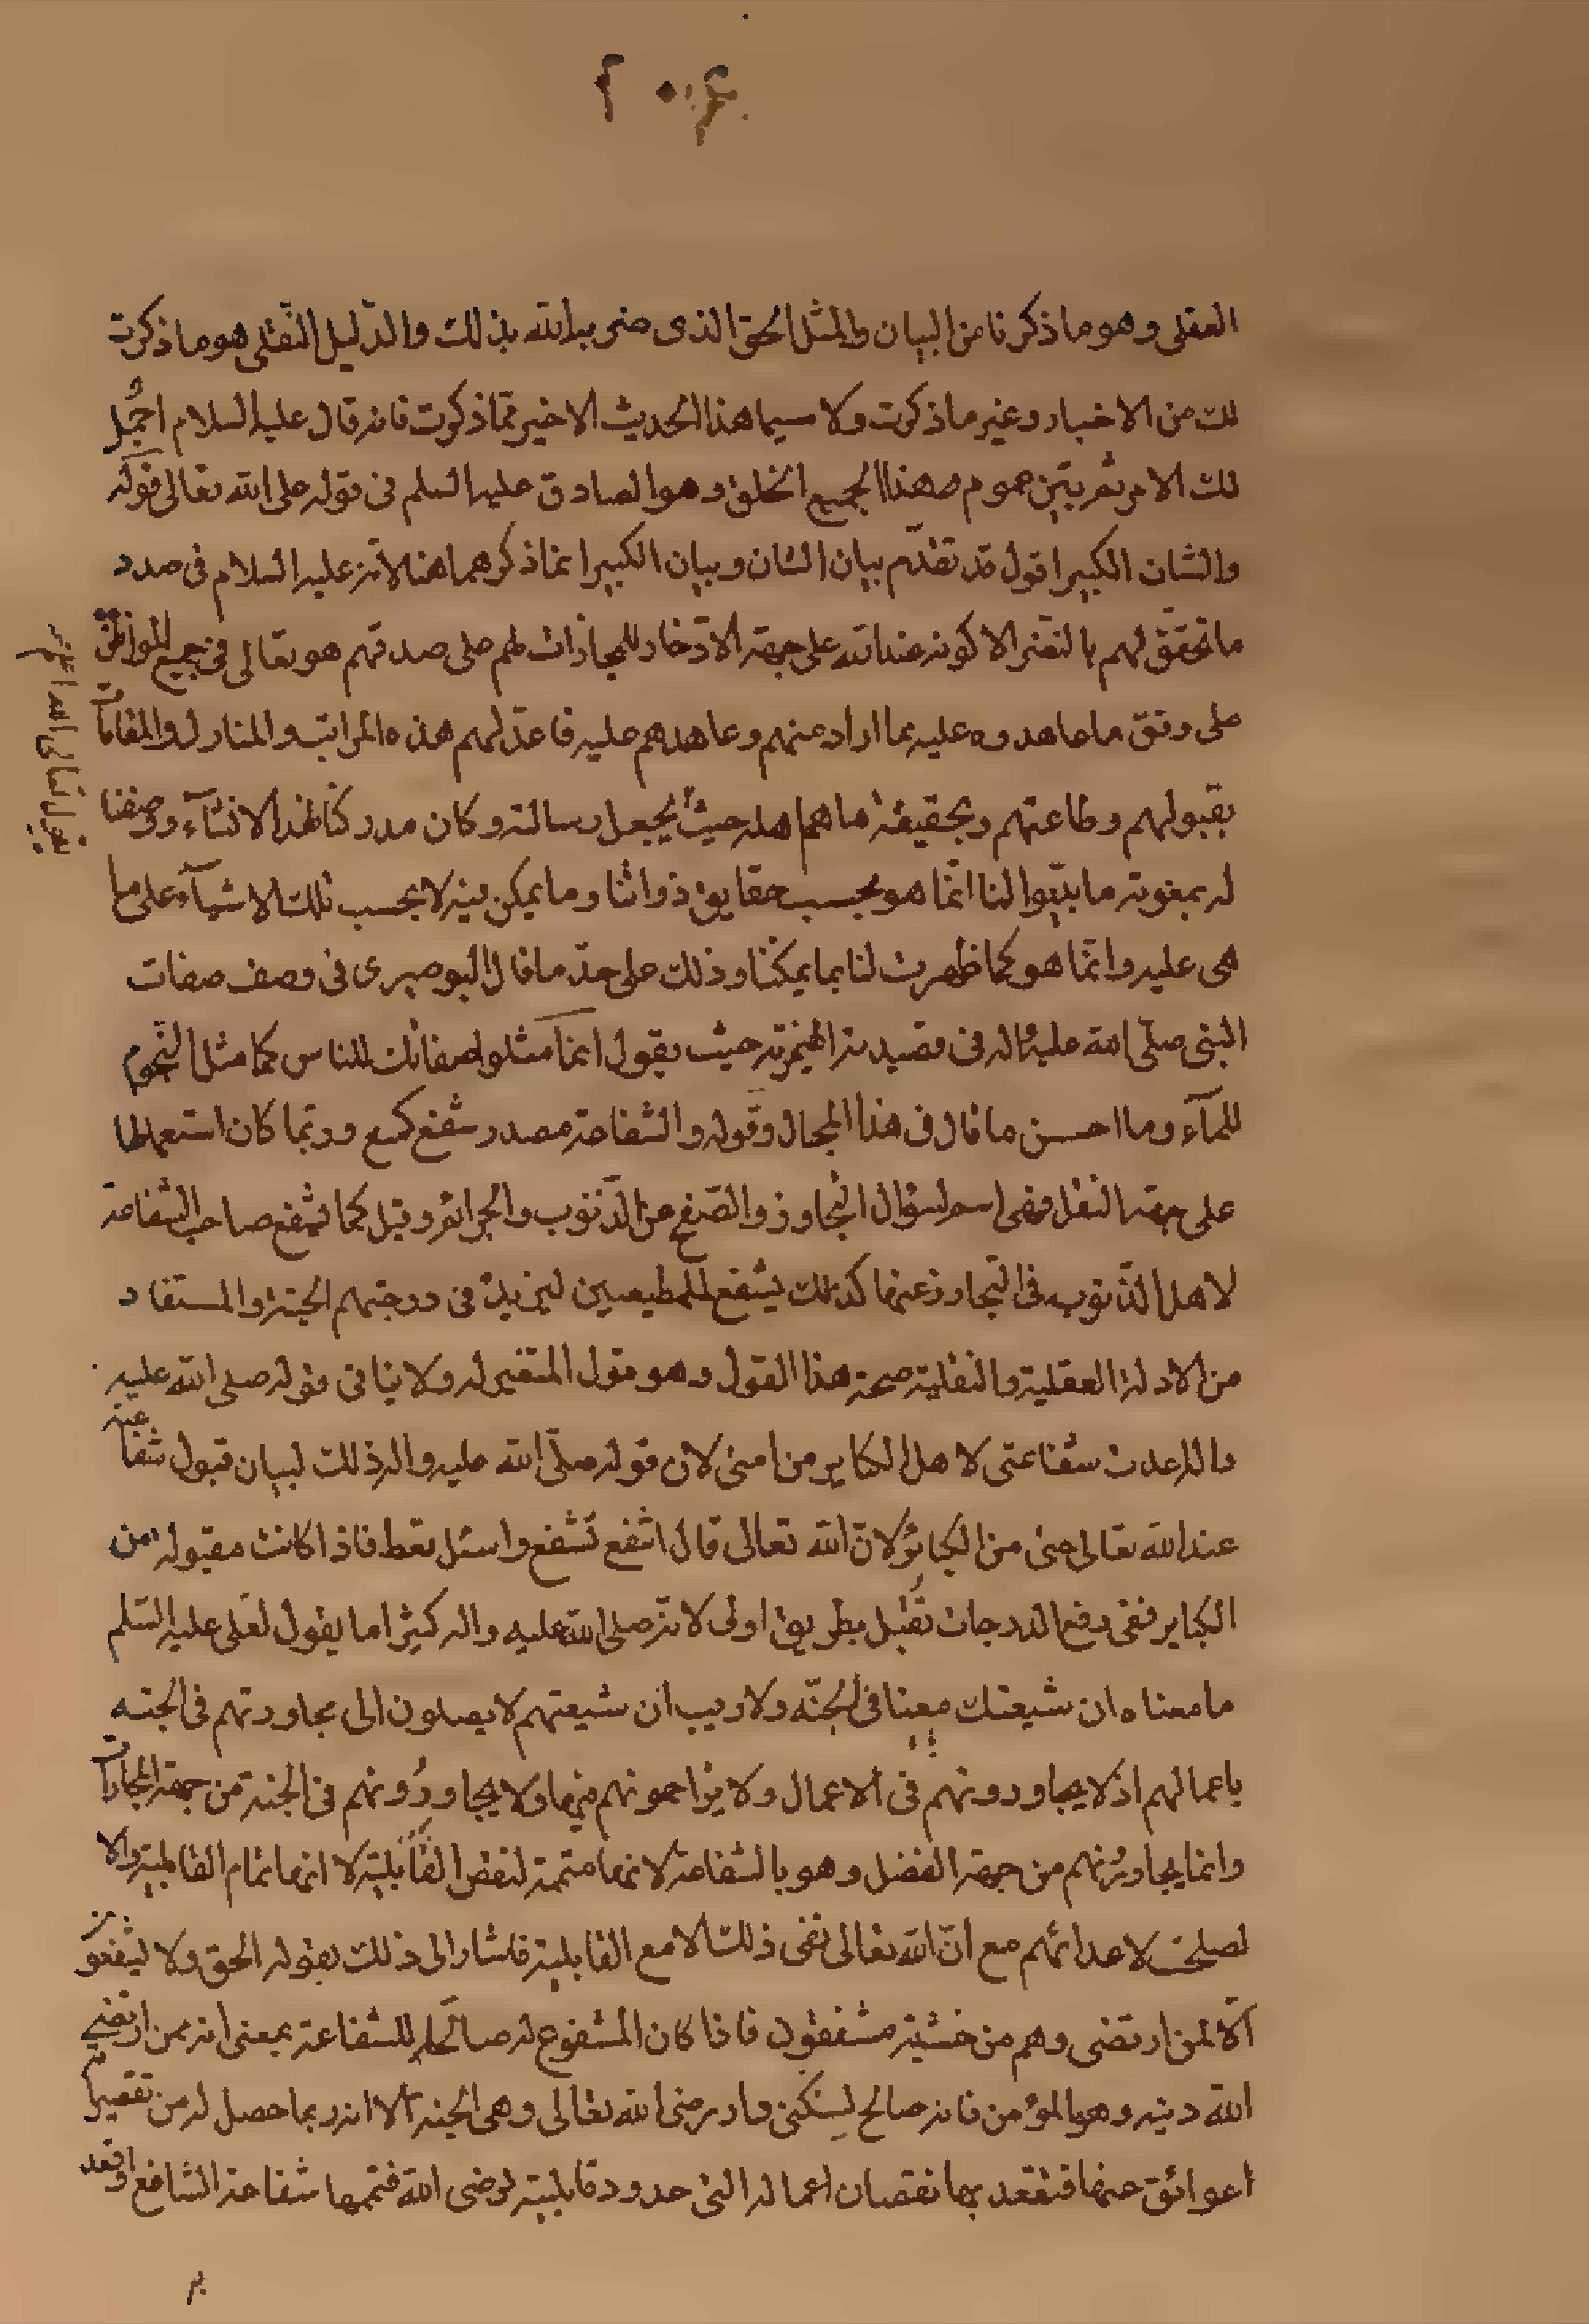 العقلى وهو ما ذكرنا من البيان والمثل الحق الذى ضربه الله بذلك والدليل النقلى هو ما ذكرت
لك من الاخبار وغير ما ذكرت ولا سيما هذا الحديث الاخير مما ذكرت فانه قال عليه السلام اجمل
لك الامر ثم بين عموم هذا لجميع الخلق وهو الصادق عليه السلم فى قوله على الله تعالى قوله
والشان الكبير اقول قد تقدم بيان الشان وبيان الكبير انما ذكرهما هنا لانه عليه السلام فى صدد
ما تحقق لهم عند الله على جهة الادخار للمجازات لهم على صدقهم هو تعالى فى جميع المواطن
على وفق ما عاهدوه عليه بما اراد منهم وعاهدهم عليه فاعد لهم هذه المراتب والمنازل والمقامات
بقبولهم وطاعتهم وبحقيقة ما هم اهله حيث يجعل رسالته وكان مدركنا لهذا الانشآء ووصفنا
له بمعونة ما بينوا لنا انما هو بحسب حقايق ذواتنا وما يمكن فيه لا بحسب تلك الاشيآء على ما
هى عليه وانما هو كما ظهرت لنا بما يمكننا وذلك على حد ما قال البوصيرى فى وصف صفات
النبى صلى الله عليه واله فى قصيدته الهمزية حيث يقول انما مثلوا صفاتك للناس كما مثل النجوم
المآء وما احسن ما قال فى هذا المجال وقوله والشفاعة مصدر شفع كمنع وربما كان استعمالها
على جهة النقل فهى اسم لسؤال التجاوز والصفح عن الذنوب والجرائم وقيل كما تشفع صاحب الشفاعة
لاهل الذنوب فى التجاوز عنها كذلك يشفع للمطيعين ليزيد فى درجتهم الجنة والمستفاد
من الادلة العقلية والنقلية صحة هذا القول وهو قول المتقين له ولا ينافى قوله صلى الله عليه
واله اعددت شفاعتى لاهل الكباير من امتى لان قوله صلى الله عليه واله ذلك لبيان قبول شفاعته
عند الله تعالى حتى من الكبائر لان الله تعالى قال اشفع تشفع واسئل تعط فاذا كانت مقبولة من
الكباير ففى رفع الدرجات تقبل بطريق اولى لانه صلى الله عليه واله كثيرا ما يقول لعلى عليه السلم
ما معناه ان شيعتك معنا فى الجنه ولا ريب ان شيعتهم لا يصلون الى مجاورتهم فى الجنه
باعمالهم اذ لا يجاورونهم فى الاعمال ولا يزاحمونهم فيها ولا يجاورونهم فى الجنة من جهة المجازات
وانما يجاورونهم من جهة الفضل وهو بالشفاعة لانها متممة لنقص القابلية لا انها تمام القابلية والا
لصلحت لاعدائهم مع ان الله تعالى نفى ذلك الا مع القابلية فاشار الى ذلك بقوله الحق ولا يشفعون
الا لمن ارتضى وهم من خشيته مشفقون فاذا كان المشفوع له صالحا للشفاعة بمعنى انه ممن ارتضى
الله دينه وهو المؤمن فانه صالح ليسكن دار رضى الله تعالى وهى الجنة الا انه ربما حصل له من تقصيراته
اعوائق عنها فتقعد بها نقصان اعماله التى حدود قابليته لرضى الله فتتمها شفاعة الشافع